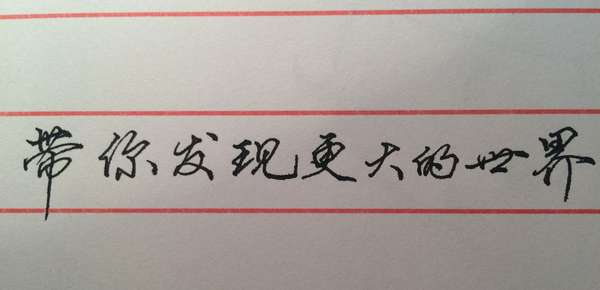 带你发现更大的世界